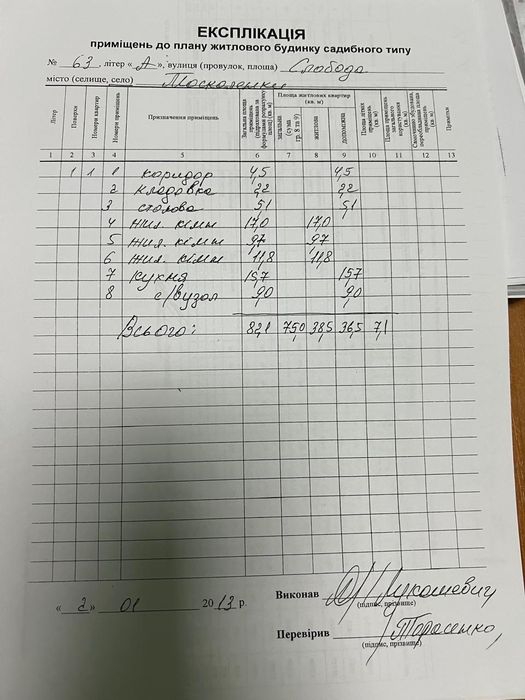 ЕКСПЛІКАЦІЯ
приміщень до плану житлового будинку садибного типу
№ 63, літер «А», вулиця (провулок, площа) Слобода
місто (селище, село) Москаленки
Літер Поверхи Номери квартир Номери приміщень Призначення приміщень Загальна площа приміщень (підрахована за формулами розрахунку площ) (кв. м) Площа житлових квартир (кв. м) загальна (сума гр. 8 та 9) житлова допоміжна Площа літніх приміщень (кв. м) Площа приміщень загального користування (кв. м) Самочинно збудована, переобладнана площа приміщень (кв. м) Примітки
1 2 3 4 5 6 7 8 9 10 11 12 13
1 1 1 коридор 4,5 4,5
2 кладовка 2,2 2,2
3 столова 5,1 5,1
4 жил. кімн 17,0 17,0
5 жил. кімн 9,7 9,7
6 жил. кімн 11,8 11,8
7 кухня 15,7 15,7
8 с/вузол 9,0 9,0
Всього: 82,1 75,0 38,5 36,5 7,1
«2» 01 2013 р.
Виконав Лукашевич
(підпис, прізвище)
Перевірив Тарасенко
(підпис, прізвище)